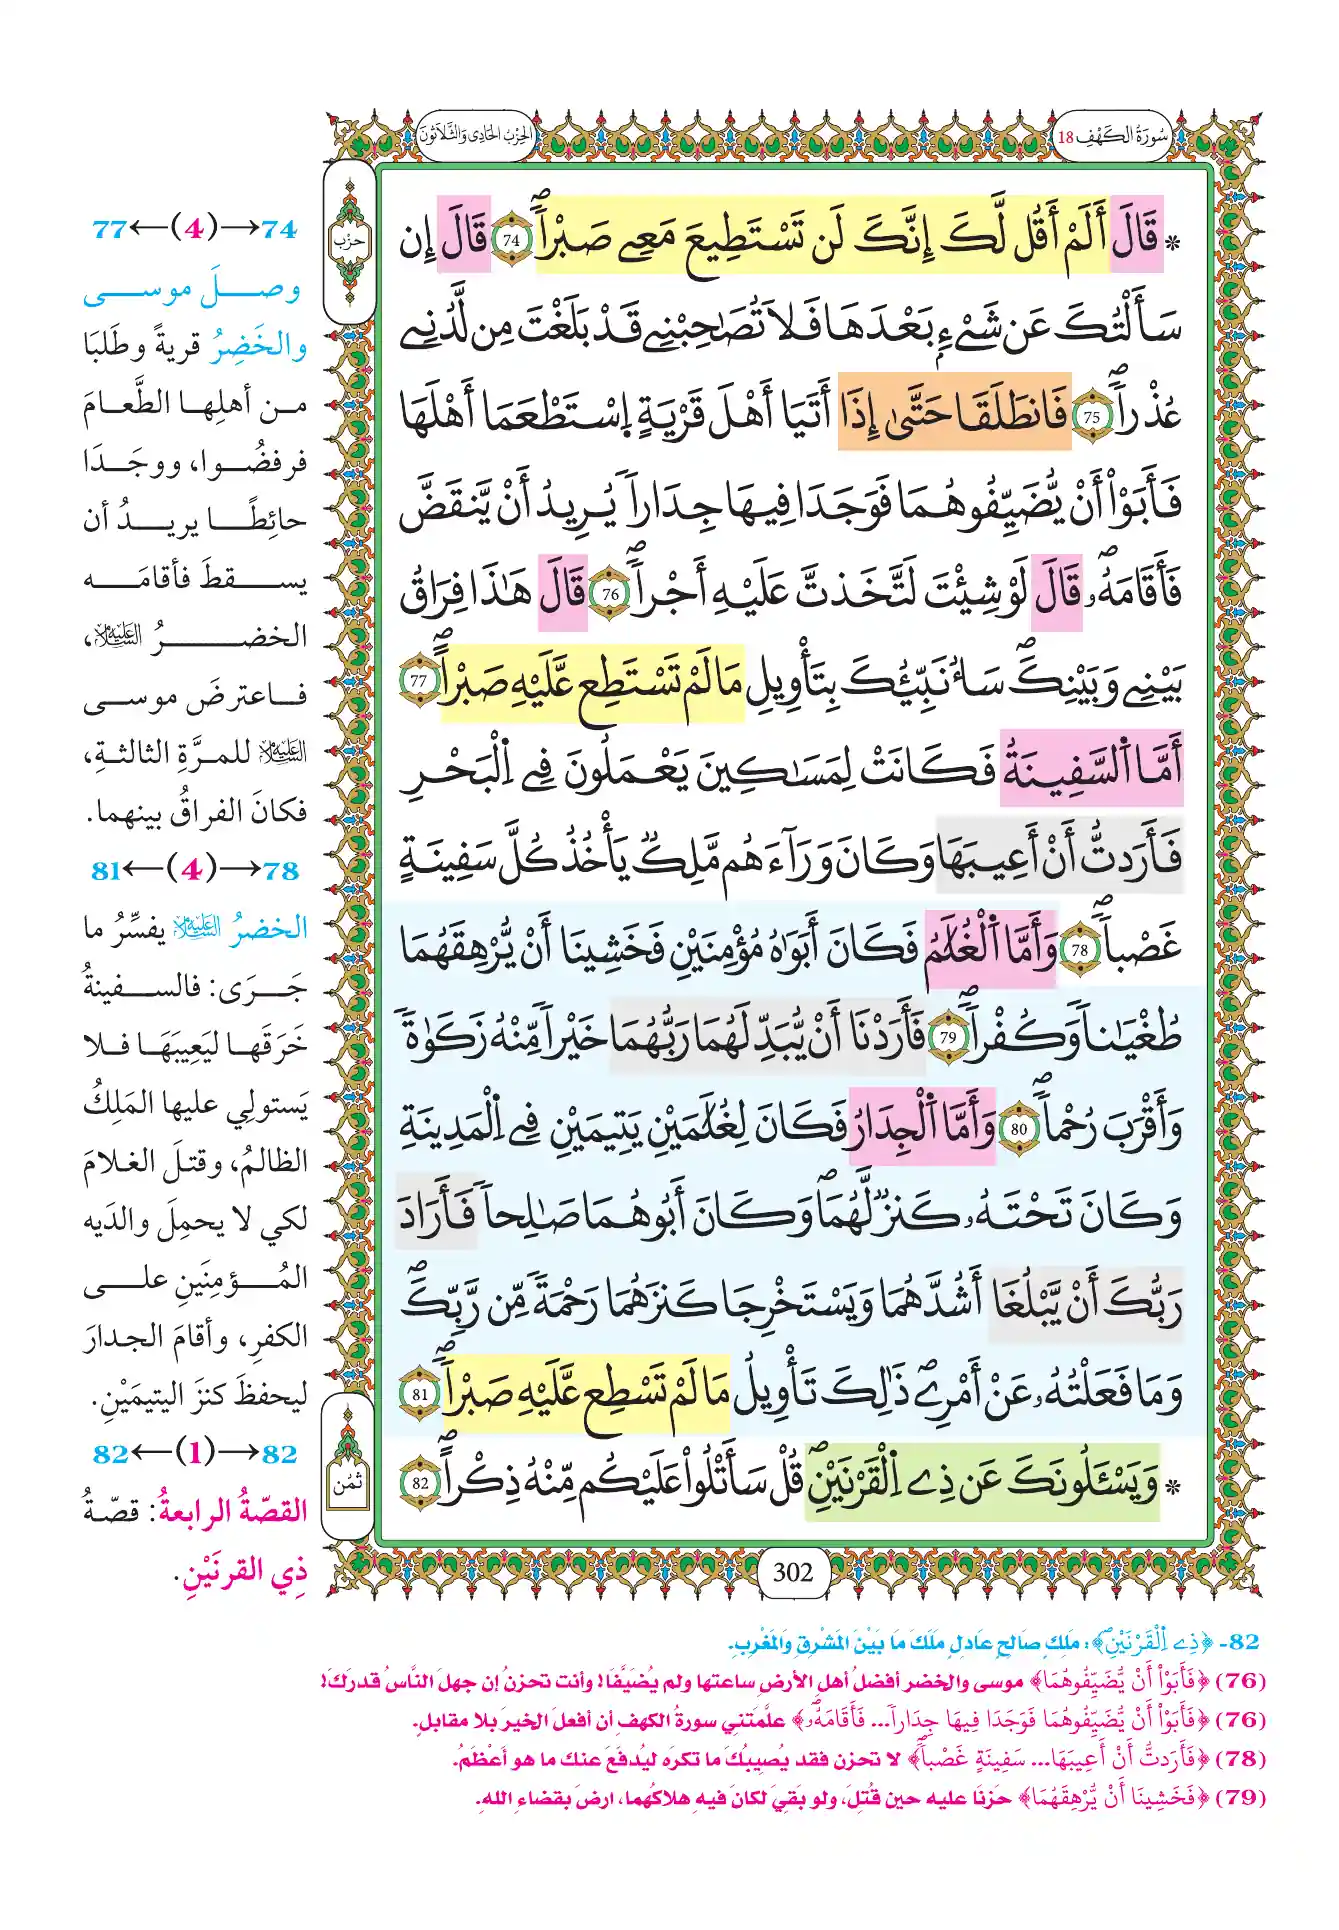 سُورَةُ الكَهْفِ 18
الحِزْبُ الحَادِي وَالثَّلَاثُونَ
حِزْب
* قَالَ أَلَمْ أَقُل لَّكَ إِنَّكَ لَن تَسْتَطِيعَ مَعِے صَبْراٗۖ 74 قَالَ إِن
سَأَلْتُكَ عَن شَےْءِۢ بَعْدَهَا فَلَا تُصَٰحِبْنِے قَدْ بَلَغْتَ مِن لَّدُنِے
عُذْراٗۖ 75 فَانطَلَقَا حَتَّىٰ إِذَا أَتَيَا أَهْلَ قَرْيَةٍ اِ۪سْتَطْعَمَا أَهْلَهَا
فَأَبَوْاْ أَنْ يُّضَيِّفُوهُمَا فَوَجَدَا فِيهَا جِدَاراٗ يُرِيدُ أَنْ يَّنقَضَّ
فَأَقَامَهُۥۖ قَالَ لَوْ شِئْتَ لَتَّخَذتَّ عَلَيْهِ أَجْراٗۖ 76 قَالَ هَٰذَا فِرَاقُ
بَيْنِے وَبَيْنِكَۖ سَأُنَبِّئُكَ بِتَأْوِيلِ مَا لَمْ تَسْتَطِع عَّلَيْهِ صَبْراًۖ 77
أَمَّا اَ۬لسَّفِينَةُ فَكَانَتْ لِمَسَٰكِينَ يَعْمَلُونَ فِے اِ۬لْبَحْرِ
فَأَرَدتُّ أَنْ أَعِيبَهَا وَكَانَ وَرَآءَهُم مَّلِكٞ يَأْخُذُ كُلَّ سَفِينَةٍ
غَصْباٗۖ 78 وَأَمَّا اَ۬لْغُلَٰمُ فَكَانَ أَبَوَٰهُ مُؤْمِنَيْنِ فَخَشِينَا أَنْ يُّرْهِقَهُمَا
طُغْيَٰناٗ وَكُفْراٗۖ 79 فَأَرَدْنَا أَنْ يُّبَدِّلَهُمَا رَبُّهُمَا خَيْراٗ مِّنْهُ زَكَوٰةٗ
وَأَقْرَبَ رُحْماٗۖ 80 وَأَمَّا اَ۬لْجِدَارُ فَكَانَ لِغُلَٰمَيْنِ يَتِيمَيْنِ فِے اِ۬لْمَدِينَةِ
وَكَانَ تَحْتَهُۥ كَنزٞ لَّهُمَاۖ وَكَانَ أَبُوهُمَا صَٰلِحاٗ فَأَرَادَ
رَبُّكَ أَنْ يَّبْلُغَا أَشُدَّهُمَا وَيَسْتَخْرِجَا كَنزَهُمَا رَحْمَةٗ مِّن رَّبِّكَۖ
وَمَا فَعَلْتُهُۥ عَنْ أَمْرِےۖ ذَٰلِكَ تَأْوِيلُ مَا لَمْ تَسْطِع عَّلَيْهِ صَبْراٗۖ 81
* وَيَسْـَٔلُونَكَ عَن ذِے اِ۬لْقَرْنَيْنِۖ قُلْ سَأَتْلُواْ عَلَيْكُم مِّنْهُ ذِكْراًۖ 82
ثُمُن
302
77←(4)→74
وصلَ موسى
والخَضِرُ قريةً وطَلَبَا
من أهلِها الطَّعامَ
فرفضُوا، ووجَدَا
حائِطًا يريدُ أن
يسقطَ فأقامَه
الخضرُ عليه السلام،
فاعترضَ موسى
عليه السلام للمرَّةِ الثالثةِ،
فكانَ الفراقُ بينهما.
81←(4)→78
الخضرُ عليه السلام يفسِّرُ ما
جَرَى: فالسفينةُ
خَرَقَها ليَعِيبَهَا فلا
يَستولِي عليها المَلِكُ
الظالمُ، وقتلَ الغلامَ
لكي لا يحمِلَ والدَيه
المُؤمِنَينِ على
الكفرِ، وأقامَ الجدارَ
ليحفظَ كنزَ اليتيمَيْنِ.
82←(1)→82
القصّةُ الرابعةُ: قصّةُ
ذِي القرنَيْنِ.
82- ﴿ذِے اِ۬لْقَرْنَيْنِۖ﴾: مَلِكٍ صَالحٍ عَادِلٍ مَلَكَ مَا بَيْنَ المَشْرِقِ وَالمَغْرِبِ.
(76) ﴿فَأَبَوْاْ أَنْ يُّضَيِّفُوهُمَا﴾ موسى والخضر أفضلُ أهلِ الأرضِ ساعتها ولم يُضَيَّفَا! وأنت تحزنُ إن جهلَ النَّاسُ قدرَكَ!
(76) ﴿فَأَبَوْاْ أَنْ يُّضَيِّفُوهُمَا فَوَجَدَا فِيهَا جِدَاراٗ... فَأَقَامَهُۥۖ﴾ علَّمَتني سورةُ الكهفِ أن أفعلَ الخيرَ بلا مقابلٍ.
(78) ﴿فَأَرَدتُّ أَنْ أَعِيبَهَا... سَفِينَةٍ غَصْباٗۖ﴾ لا تحزن فقد يُصِيبُكَ ما تكرَه ليُدفَعَ عنكَ ما هو أَعْظَمُ.
(79) ﴿فَخَشِينَا أَنْ يُّرْهِقَهُمَا﴾ حَزنَا عليه حين قُتِلَ، ولو بَقِيَ لكانَ فيهِ هلاكُهما، ارضَ بقضاءِ اللهِ.